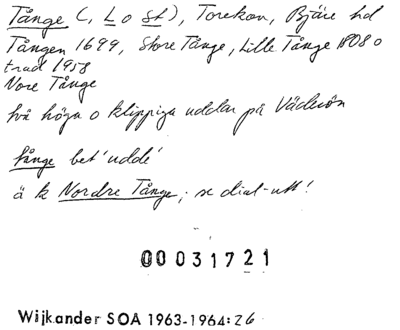 Tånge (, L o St), Torekov, Bjäre hd
Tången 1699, Store Tånge, Lille Tånge 1808 o
trad 1958
Nore Tånge
två höga o klippiga uddar på Väderön
tånge bet 'udde'
ä k Nordre Tånge; se dial-utt!
00031721
Wijkander SOA 1963-1964:26